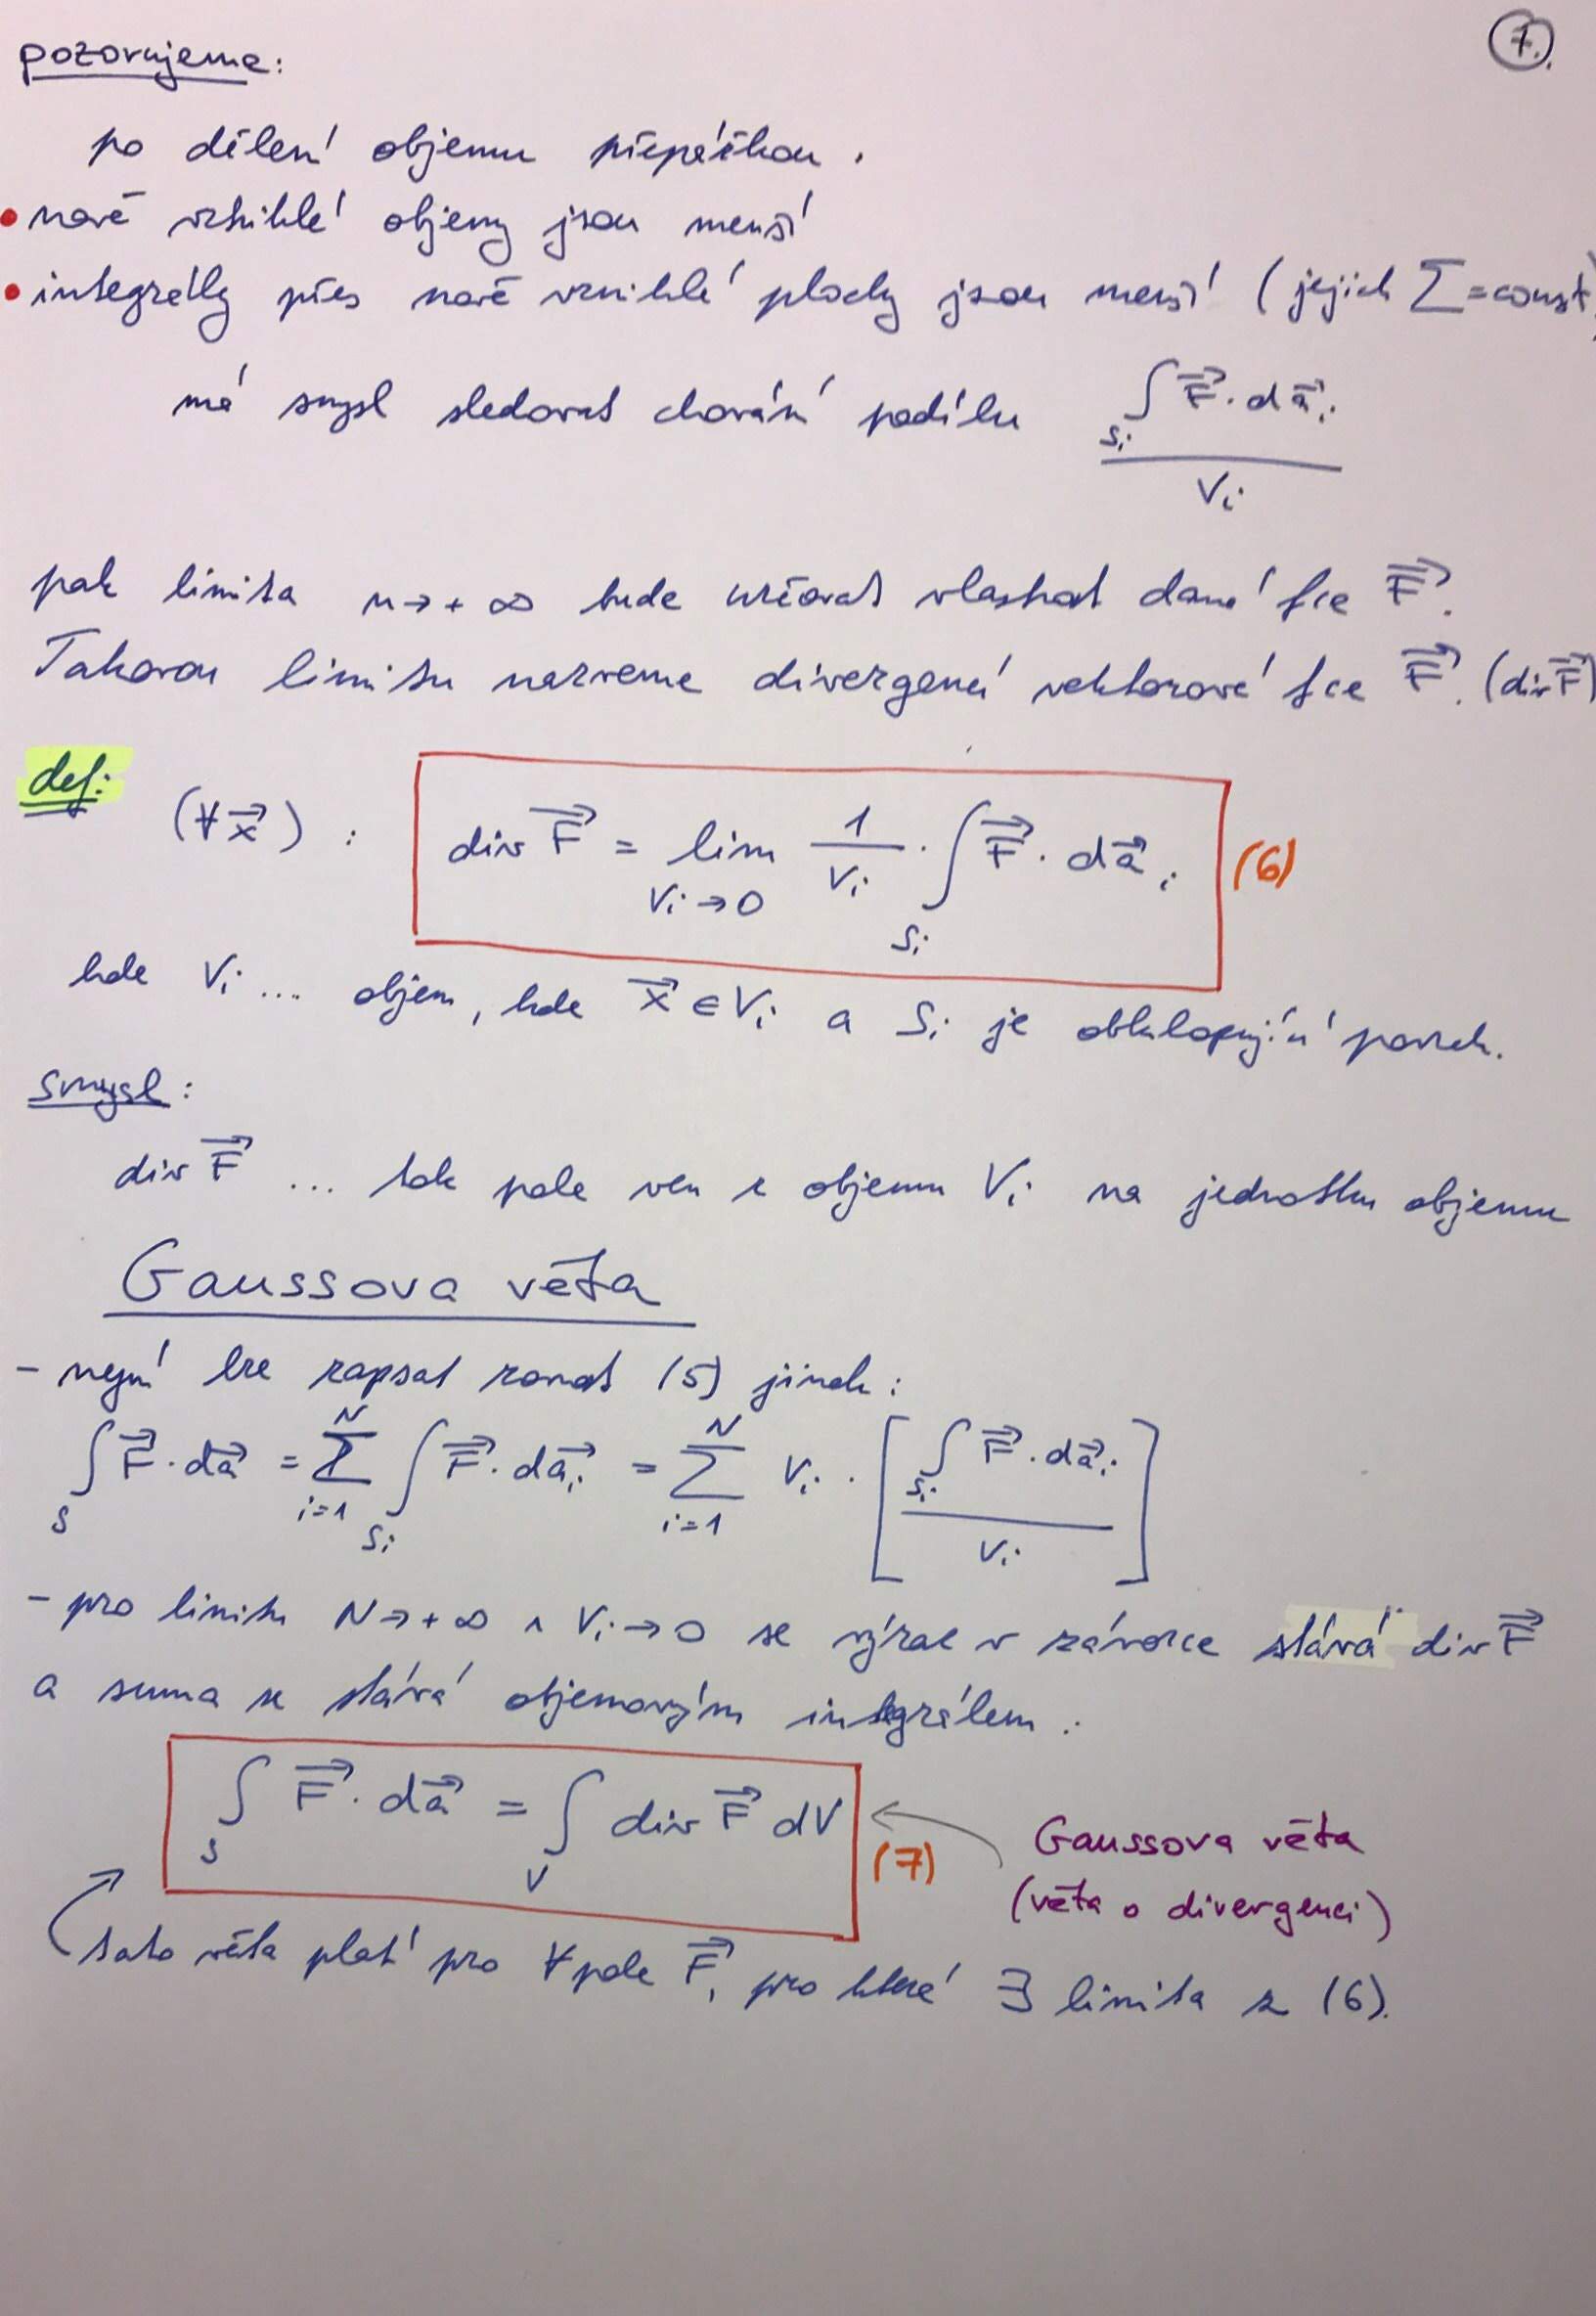 7.
pozorujeme:
po dělení objemu přepážkou.
• nově vzniklé objemy jsou menší
• integrály přes nově vzniklé plochy jsou menší (jejich ∑ = const)
má smysl sledovat chování podílu ∫_{Sᵢ} F⃗ · da⃗ᵢ / Vᵢ
pak limita n → +∞ bude určovat vlastnost dané fce F⃗.
Takovou limitu nazveme divergencí vektorové fce F⃗. (div F⃗)
def: (∀x⃗) : div F⃗ = lim_{Vᵢ→0} 1/Vᵢ · ∫_{Sᵢ} F⃗ · da⃗ᵢ (6)
kde Vᵢ ... objem, kde x⃗ ∈ Vᵢ a Sᵢ je obklopující povrch.
smysl:
div F⃗ ... tok pole ven z objemu Vᵢ na jednotku objemu
Gaussova věta
- nyní lze zapsat rovnost (5) jinak:
∫_S F⃗ · da⃗ = ∑_{i=1}^{N} ∫_{Sᵢ} F⃗ · da⃗ᵢ = ∑_{i=1}^{N} Vᵢ · [ ∫_{Sᵢ} F⃗ · da⃗ᵢ / Vᵢ ]
- pro limitu N → +∞ ∧ Vᵢ → 0 se výraz v závorce stává div F⃗
a suma se stává objemovým integrálem :
∫_S F⃗ · da⃗ = ∫_V div F⃗ dV (7)
Gaussova věta
(věta o divergenci)
tato věta platí pro ∀ pole F⃗, pro které ∃ limita z (6).